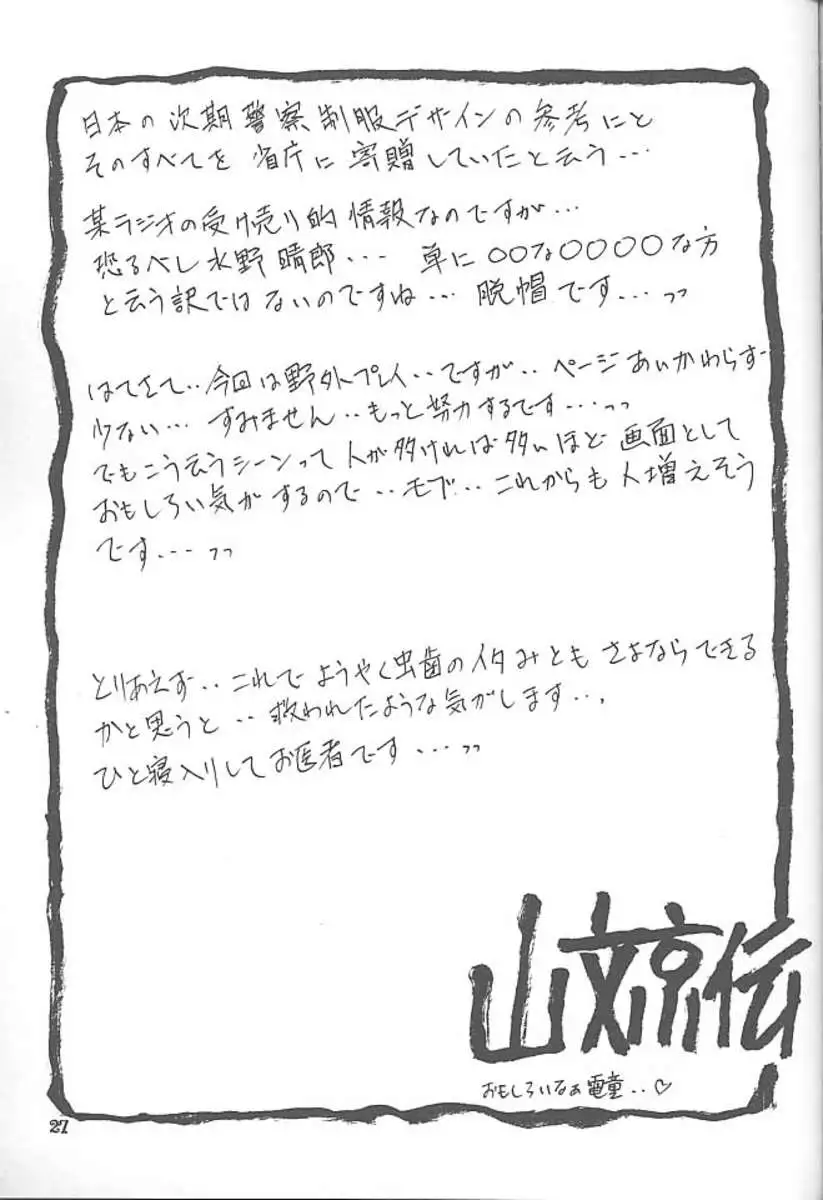 日本の次期警察制服デザインの参考にと
そのすべてを省庁に寄贈していたと云う…
某ラジオの受け売り的情報なのですが…
恐るべし水野晴郎… 単に○○な○○○○な方
と云う訳ではないのですね… 脱帽です…ッッ
はてさて‥今回は野外プレイ‥ですが‥ページあいかわらず
少ない… すみません‥もっと努力するです…ッッ
でもこう云うシーンって人が多ければ多いほど画面として
おもしろい気がするので‥モブ‥これからも人増えそう
です…ッッ
とりあえず‥これでようやく虫歯のイタみともさよならできる
かと思うと‥救われたような気がします‥.
ひと寝入りしてお医者です…ッッ
山文京伝
おもしろいなぁ電童‥♡
27